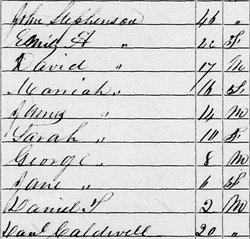 John Stephenson 46 "
Emily A " 22 F
David " 17 M
Mariah " 16 F
James " 14 M
Sarah " 10 F
George " 8 M
Jane " 6 F
Daniel T " 2 M
Danl Caldwell 20 "